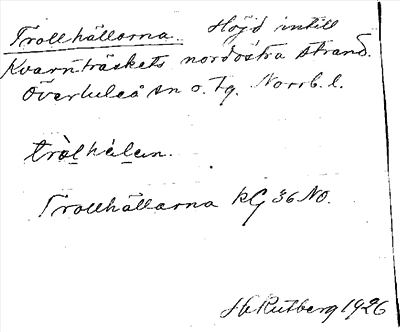 Trollhällarna. Höjd intill
Kvarnträskets nordöstra strand.
Överluleå sn o. tg. Norrb. l.
tròlhèlan.
Trollhällarna kG 36 NO.
H. Rutberg 1926